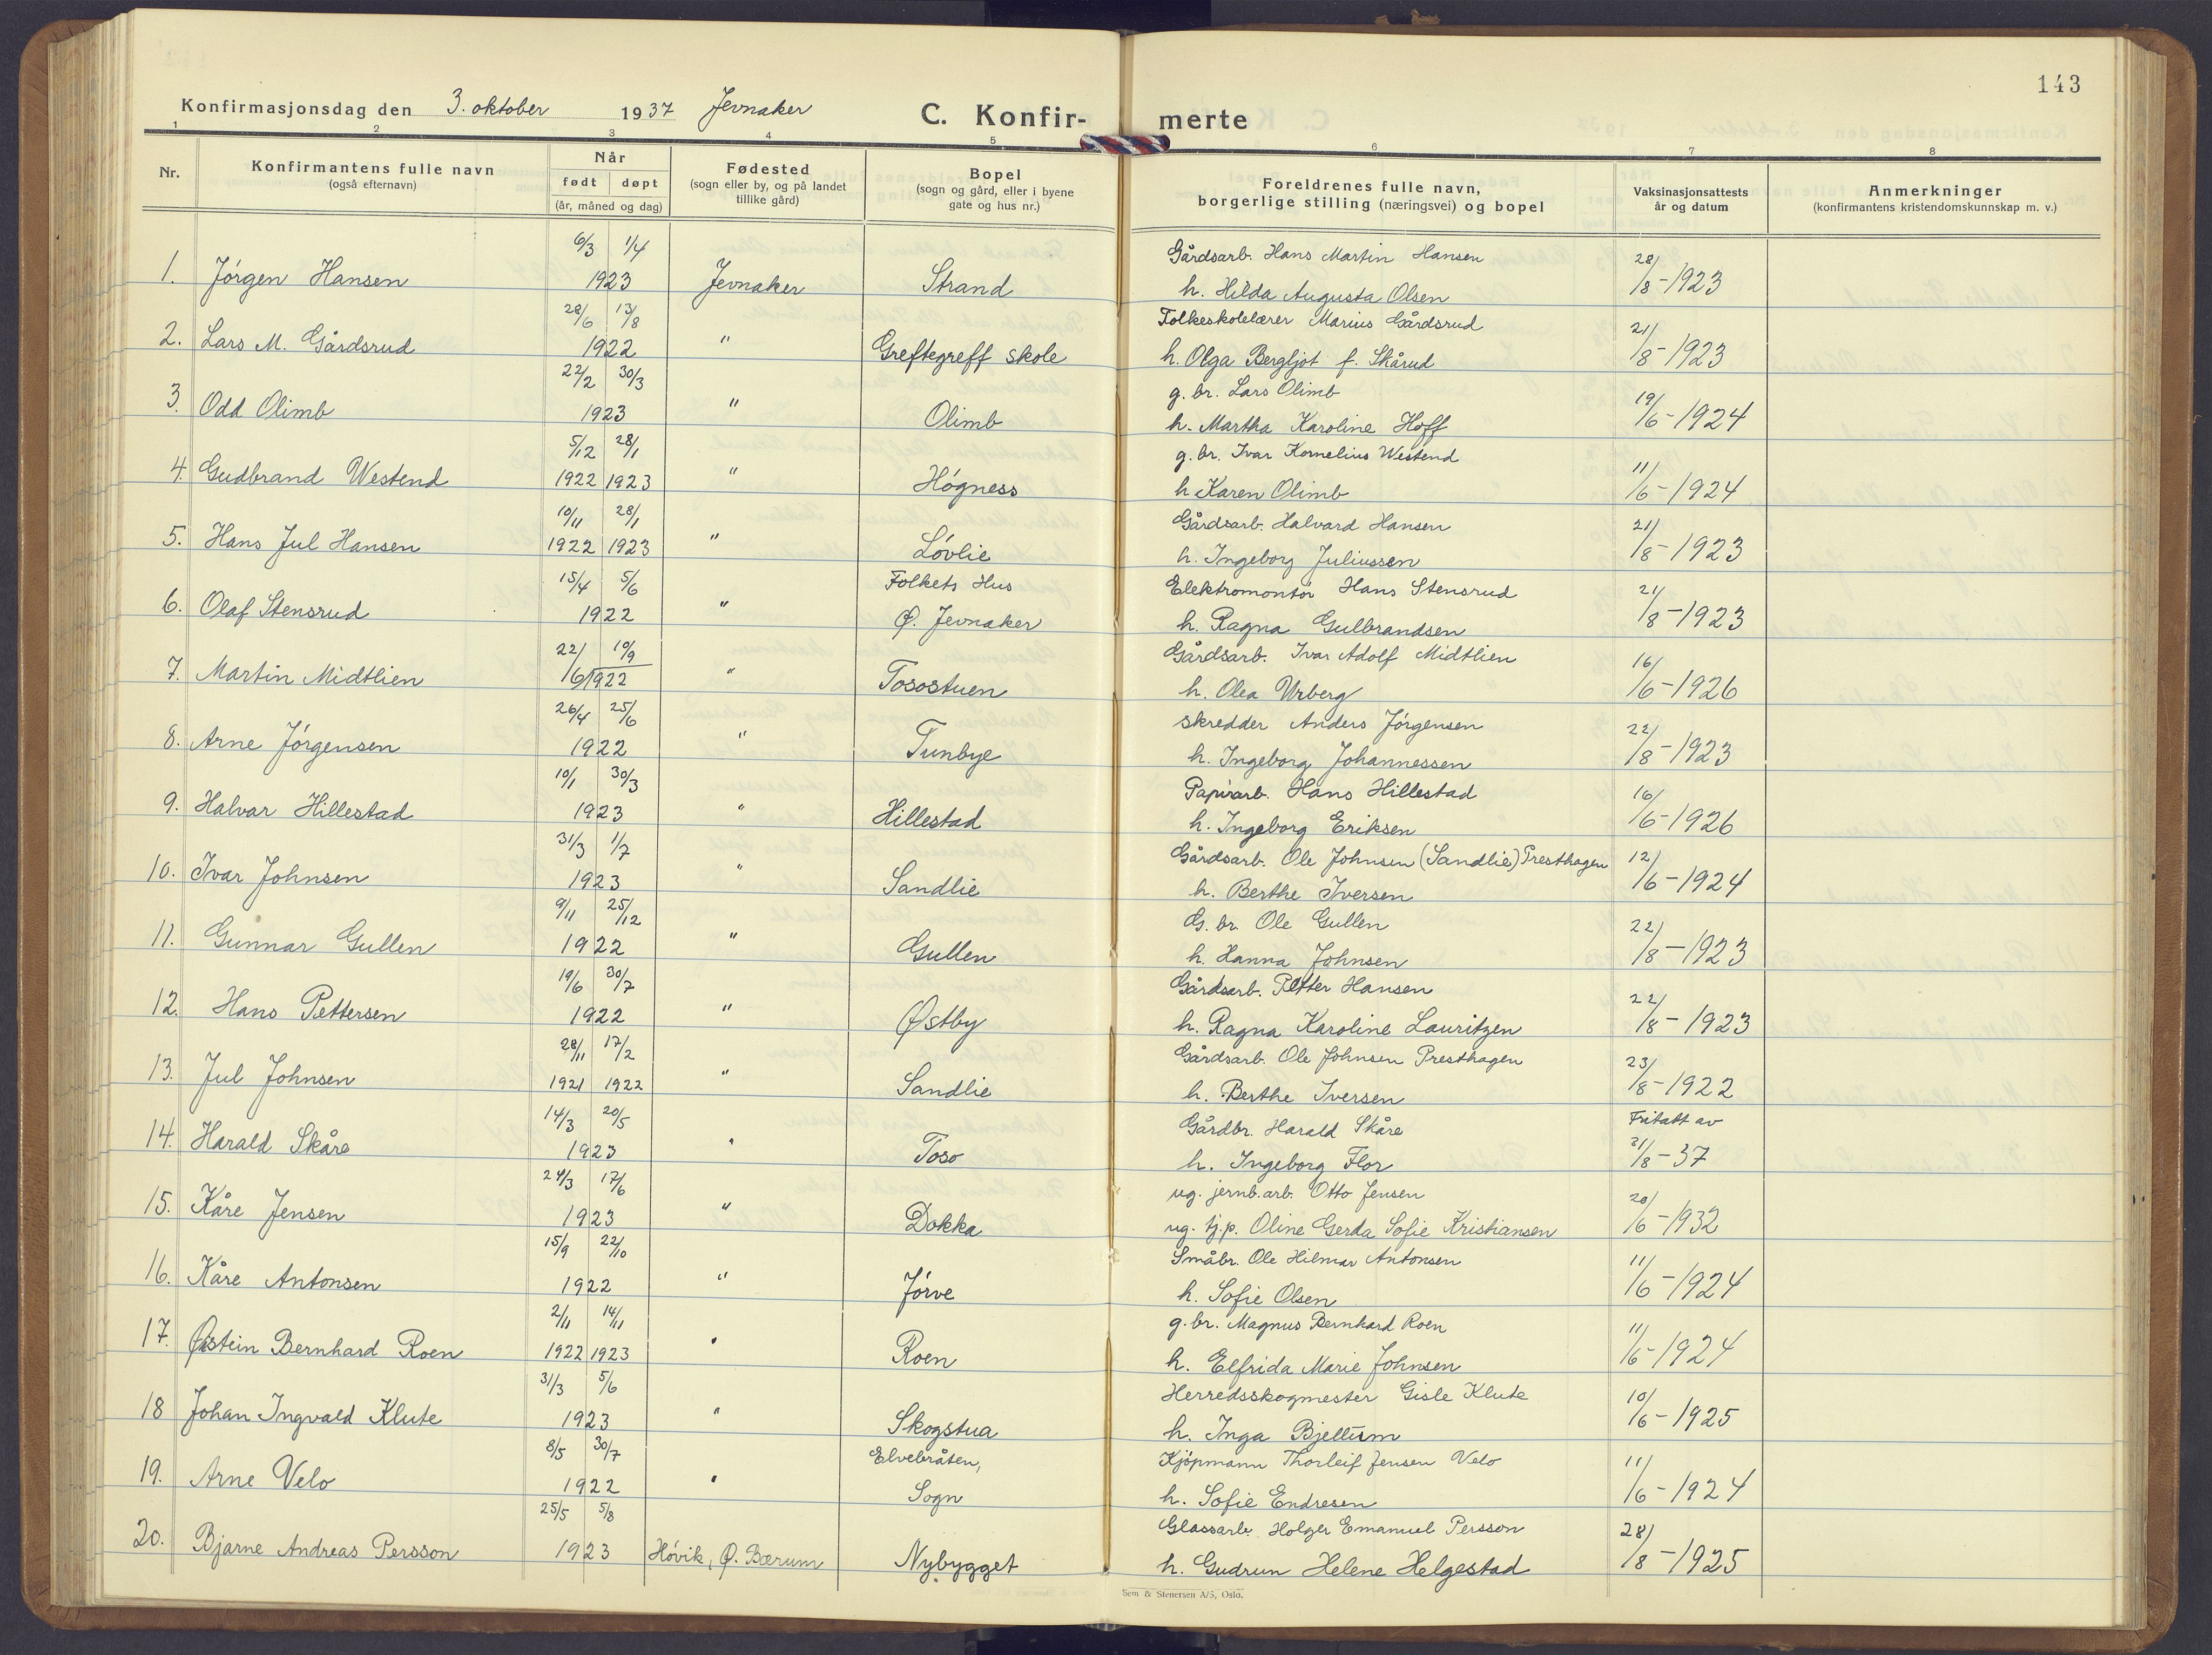 143
Konfirmasjonsdag den 3. oktober 1937 Jevnaker C. Konfir- merte
1 2 3 4 5 6 7 8
Nr. Konfirmantens fulle navn (også efternavn) Når født døpt (år, måned og dag) Fødested (sogn eller by, og på landet tillike gård) Bopel (sogn og gård, eller i byene gate og hus nr.) Foreldrenes fulle navn, borgerlige stilling (næringsvei) og bopel Vaksinasjonsattests år og datum Anmerkninger (konfirmantens kristendomskunnskap m. v.)
6/3 1/4 Gårdsarb. Hans Martin Hansen
1. Jörgen Hansen 1923 Jevnaker Strand h. Hilda Augusta Olsen 28/8-1923
28/6 13/8 Folkeskolelærer Marius Gårdsrud
2. Lars M. Gårdsrud 1922 " Greftegreff skole h. Olga Bergljot f. Skårud 21/8-1923
22/2 30/3 g. br. Lars Olimb
3. Odd Olimb 1923 " Olimb h. Martha Karoline Hoff 19/6-1924
5/12 28/1 g. br. Ivar Kornelius Westend
4. Gudbrand Westend 1922 1923 " Högness h Karen Olimb 11/6-1924
10/11 28/1 Gårdsarb. Halvard Hansen
5. Hans Jul Hansen 1922 1923 " Lövlie h. Ingeborg Juliussen 21/8-1923
15/4 5/6 Folkets Hus Elektromontör Hans Stensrud
6. Olaf Stensrud 1922 " Ø. Jevnaker h. Ragna Gulbrandsen 21/8-1923
22/6 10/9 Gårdsarb. Ivar Adolf Midtlien
7. Martin Midtlien 1922 " Tosostuen h. Olea Urberg 16/6-1926
26/4 25/6 skredder Anders Jörgensen
8. Arne Jörgensen 1922 " Tunbye h. Ingeborg Johannessen 22/8-1923
10/1 30/3 Papirarb. Hans Hillestad
9. Halvar Hillestad 1923 " Hillestad h. Ingeborg Eriksen 16/6-1926
31/3 1/7 Gårdsarb. Ole Johnsen (Sandlie) Presthagen
10. Ivar Johnsen 1923 " Sandlie h. Berthe Iversen 12/6-1924
9/11 25/12 G. br. Ole Gullen
11. Gunnar Gullen 1922 " Gullen h. Hanna Johnsen 22/8-1923
19/6 30/7 Gårdsarb. Petter Hansen
12. Hans Pettersen 1922 " Østby h. Ragna Karoline Lauritzen 22/8-1923
28/11 17/2 Gårdsarb. Ole Johnsen Presthagen
13. Jul Johnsen 1921 1922 " Sandlie h. Berthe Iversen 23/8-1922
14/3 20/5 Gårdbr. Harald Skåre Fritatt av
14. Harald Skåre 1923 " Toso h. Ingeborg Flor 31/8-37
24/3 17/6 ug. jernb.arb. Otto Jensen
15. Kåre Jensen 1923 " Dokka ug. tj.p. Oline Gerda Sofie Kristiansen 20/6-1932
15/9 22/10 Småbr. Ole Hilmar Antonsen
16. Kåre Antonsen 1922 " Jörve h. Sofie Olsen 11/6-1924
2/11 14/11 g. br. Magnus Bernhard Roen
17. Østein Bernhard Roen 1922 1923 " Roen h. Elfrida Marie Johnsen 11/6-1924
31/3 5/6 Herredsskogmester Gisle Klute
18 Johan Ingvald Klute 1923 " Skogstua h. Inga Bjellum 10/6-1925
8/5 30/7 Elvebråten, Kjöpmann Thorleif Jensen Velo
19. Arne Velo 1922 " Sogn h. Sofie Endresen 11/6-1924
25/5 5/8 Glassarb. Holger Emanuel Persson
20. Bjarne Andreas Persson 1923 Hövik, Ø. Bærum Nybygget h. Gudrun Helene Helgestad 28/8-1925
Sem & Stenersen A/S, Oslo.